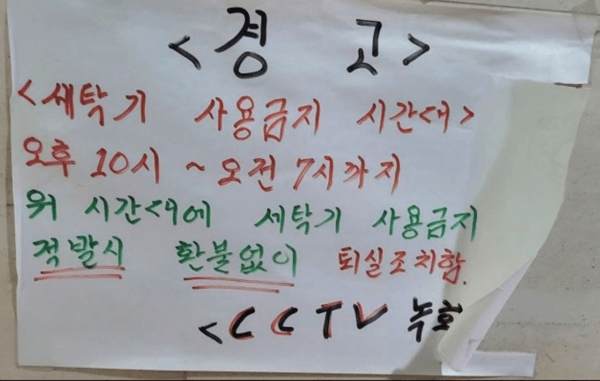 <경 고>
<세탁기 사용금지 시간대>
오후 10시 ~ 오전 7시까지
위 시간대에 세탁기 사용금지
적발시 환불없이 퇴실조치함.
<CCTV 녹화